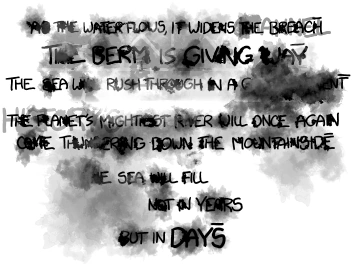 AND THE WATER FLOWS, IT WIDENS THE BREACH
THE BERM IS GIVING WAY
THE SEA WILL RUSH THROUGH IN A
THE PLANET'S MIGHTIEST RIVER WILL ONCE AGAIN
COME THUNDERING DOWN THE MOUNTAINSIDE
THE SEA WILL FILL
NOT IN YEARS
BUT IN DAYS